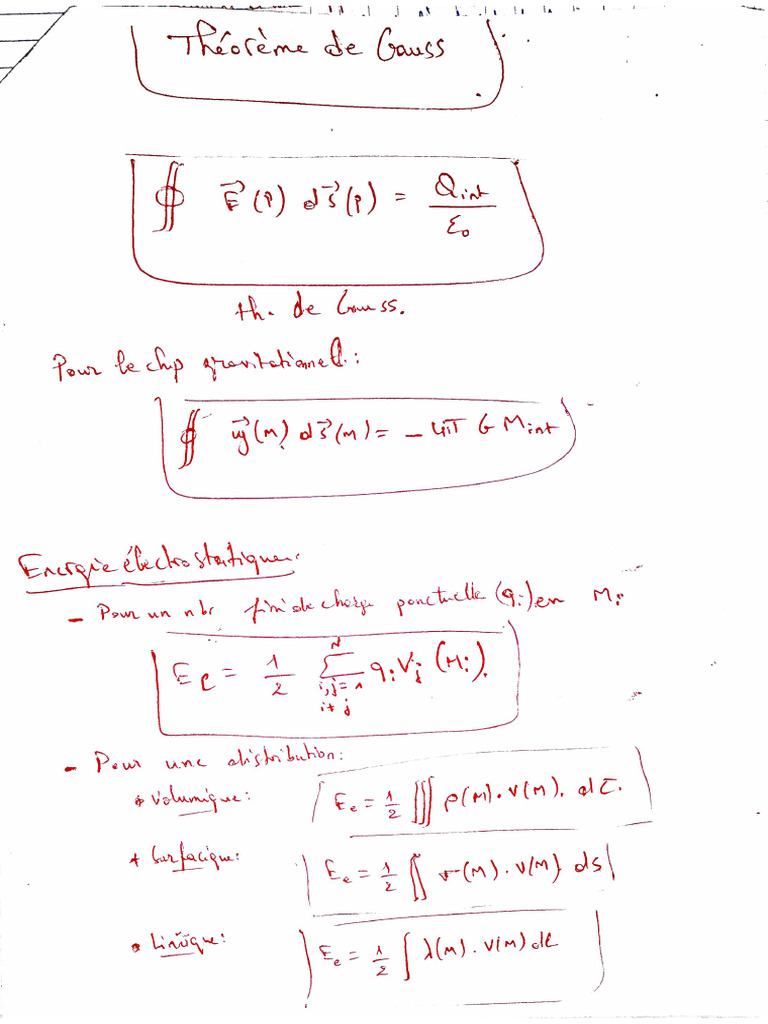 Théorème de Gauss
∯ E⃗(P) dS⃗(P) = Qint / ε₀
th. de Gauss.
Pour le chp gravitationnel :
∯ g⃗(M) dS⃗(M) = - 4π G Mint
Energie électrostatique.
- Pour un nbr fini de charge ponctuelle (qi) en Mi
Ee = 1/2 Σ(i,j=1, i≠j)^N qi Vj (Mi).
- Pour une distribution :
* Volumique : Ee = 1/2 ∭ ρ(M) . V(M) . dτ.
* Surfacique : Ee = 1/2 ∬ σ(M) . V(M) ds
• Linïque : Ee = 1/2 ∫ λ(M) . V(M) dℓ